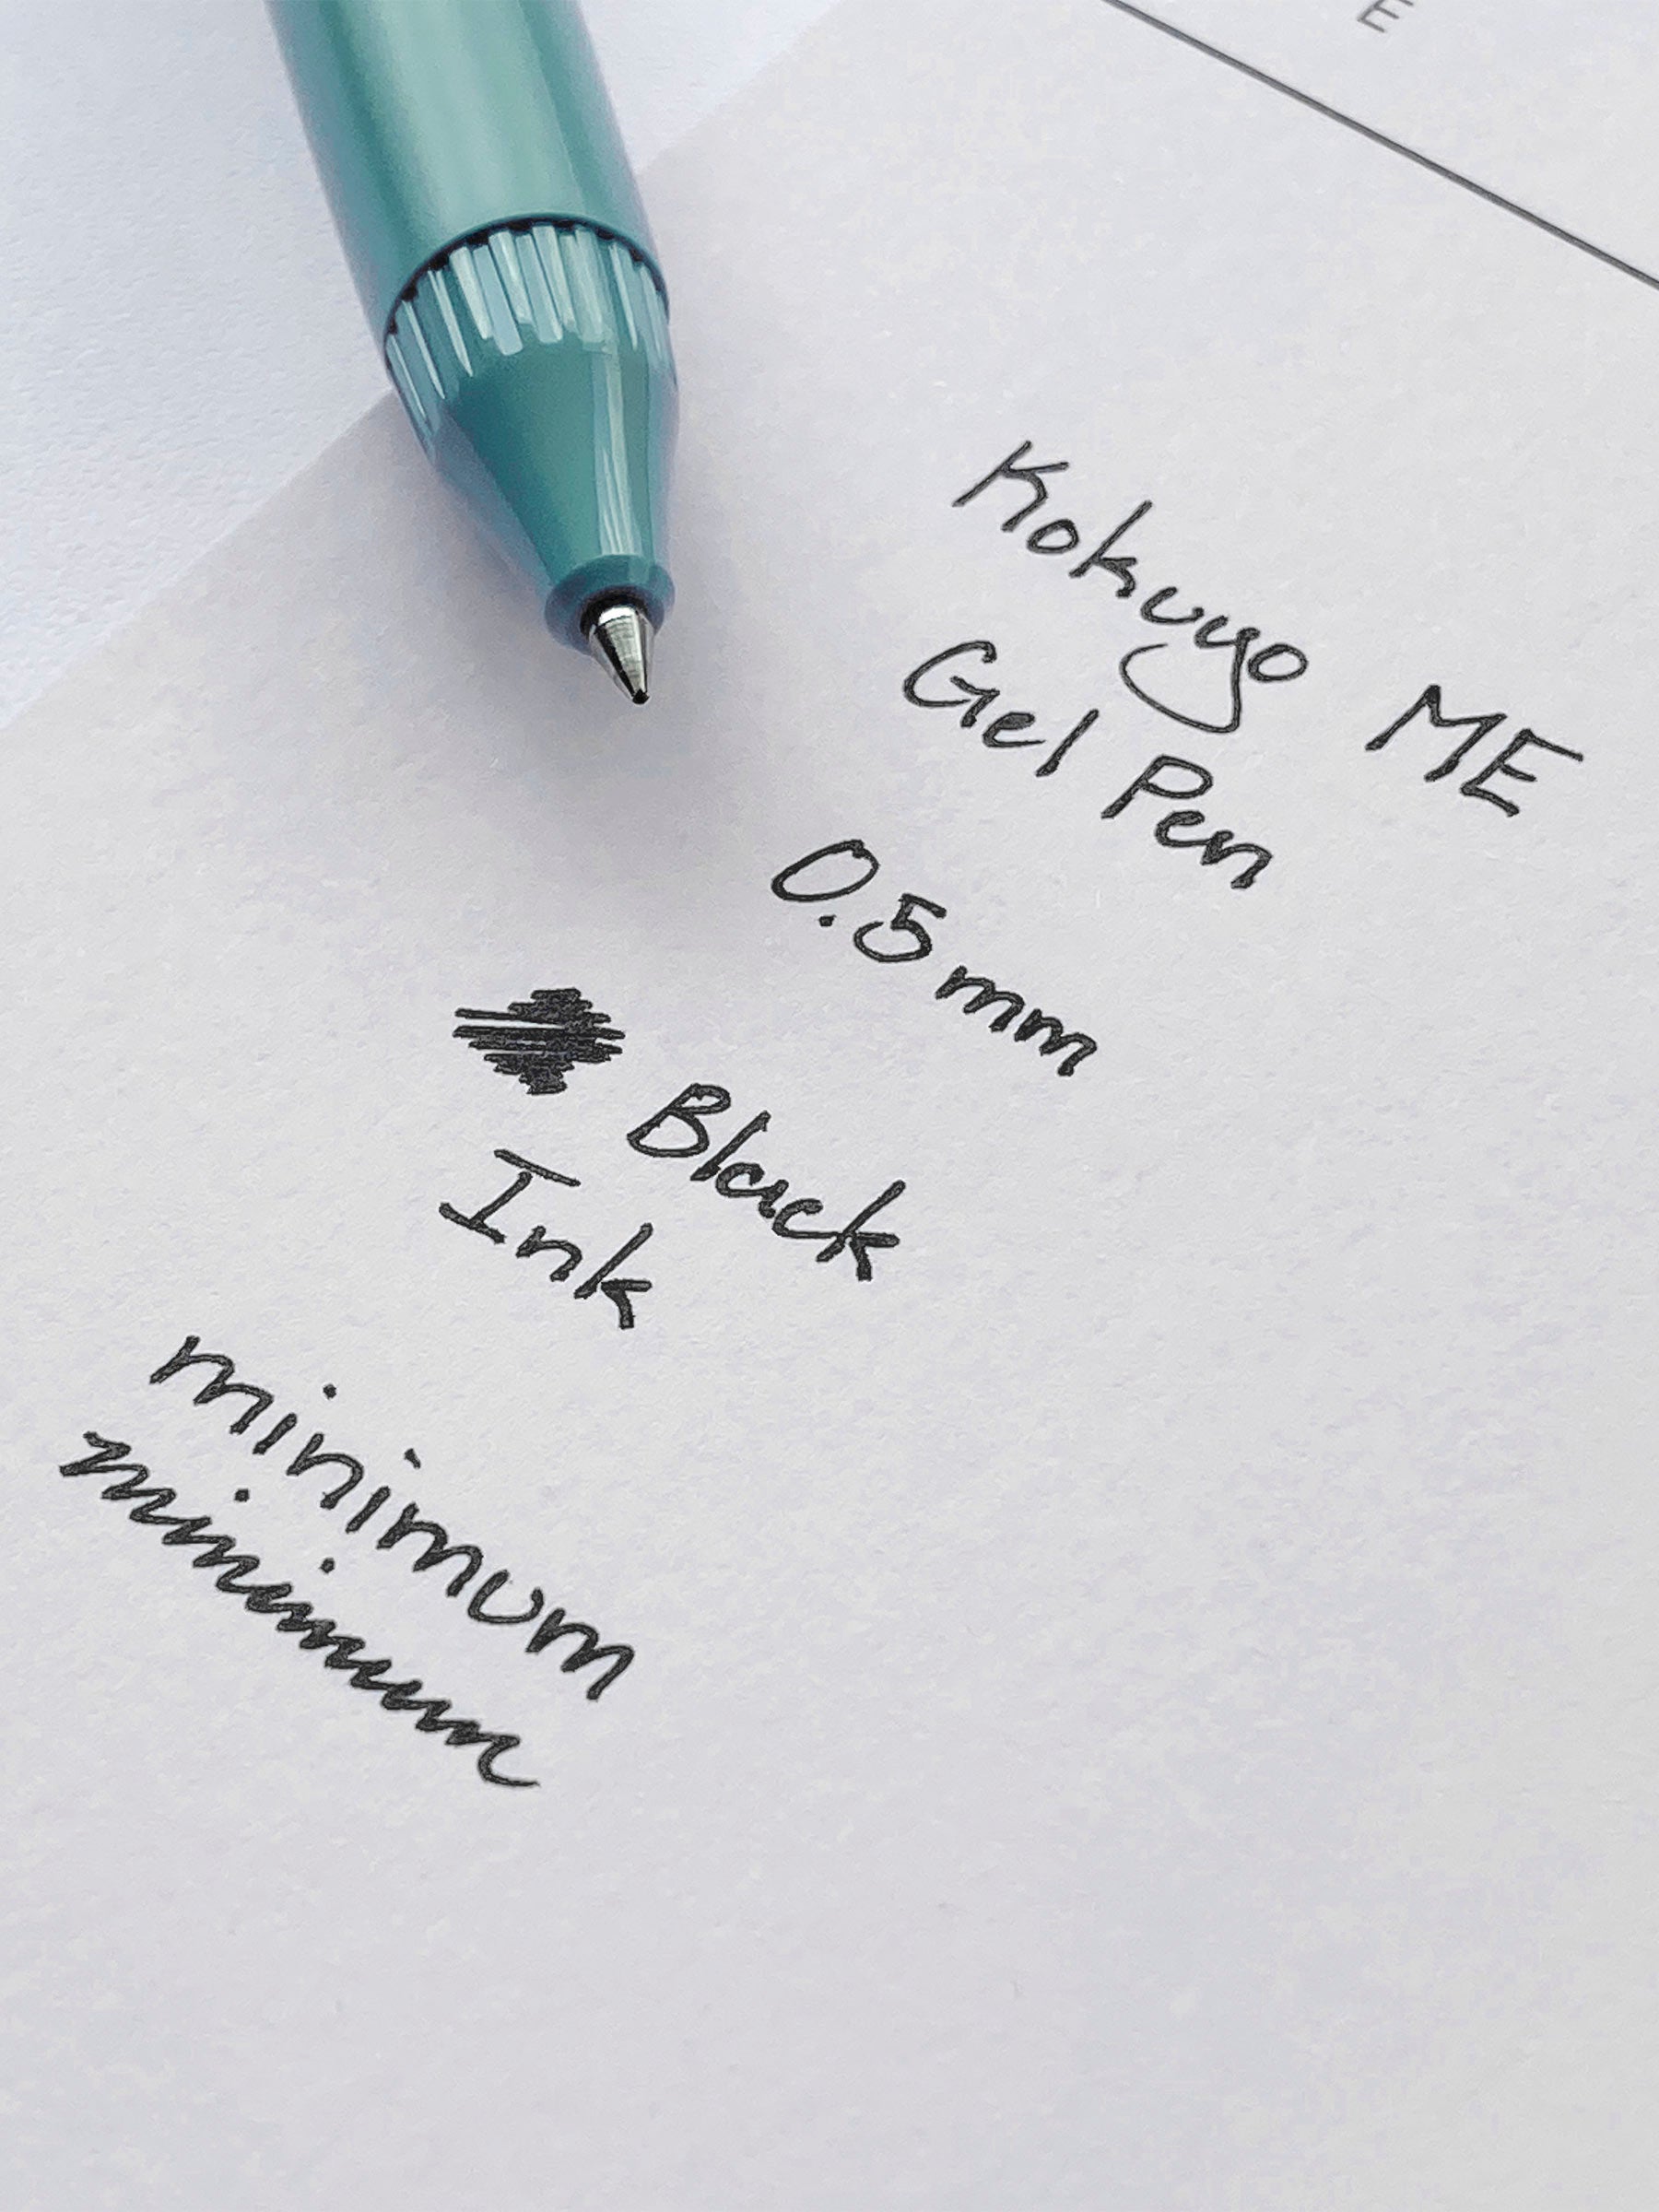 E
Kokuyo ME
Gel Pen
0.5 mm
Black
Ink
minimum
minimum